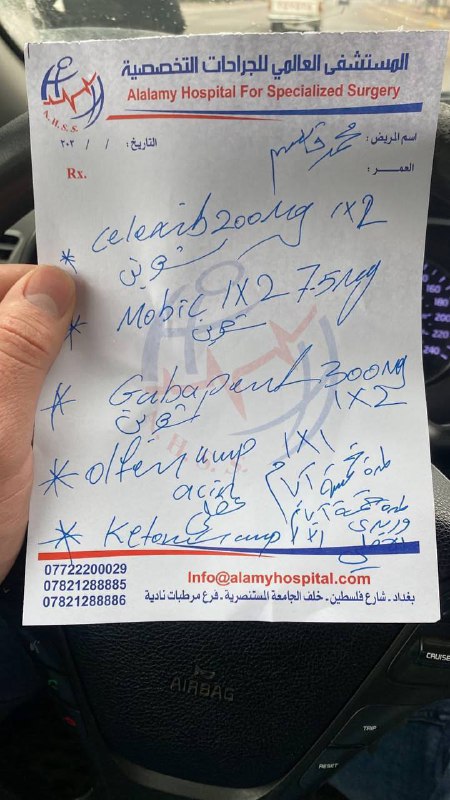 المستشفى العالمي للجراحات التخصصية
Alalamy Hospital For Specialized Surgery
A.H.S.S.
اسم المريض: محمد قاسم
التاريخ: / / ٢٠٢
العمر:
Rx.
* Celexib 200mg 1x2
شهرين
* Mobic 1x2 7.5mg
شهرين
* Gabapent 300mg
شهرين 1x2
* olfen amp 1x1
* Ketone amp 1x1
07722200029
07821288885
07821288886
Info@alamyhospital.com
بغداد ـ شارع فلسطين ـ خلف الجامعة المستنصرية ـ فرع مرطبات نادية
AIRBAG
CRUISE
TRIP
RESET
160
180
200
220
240